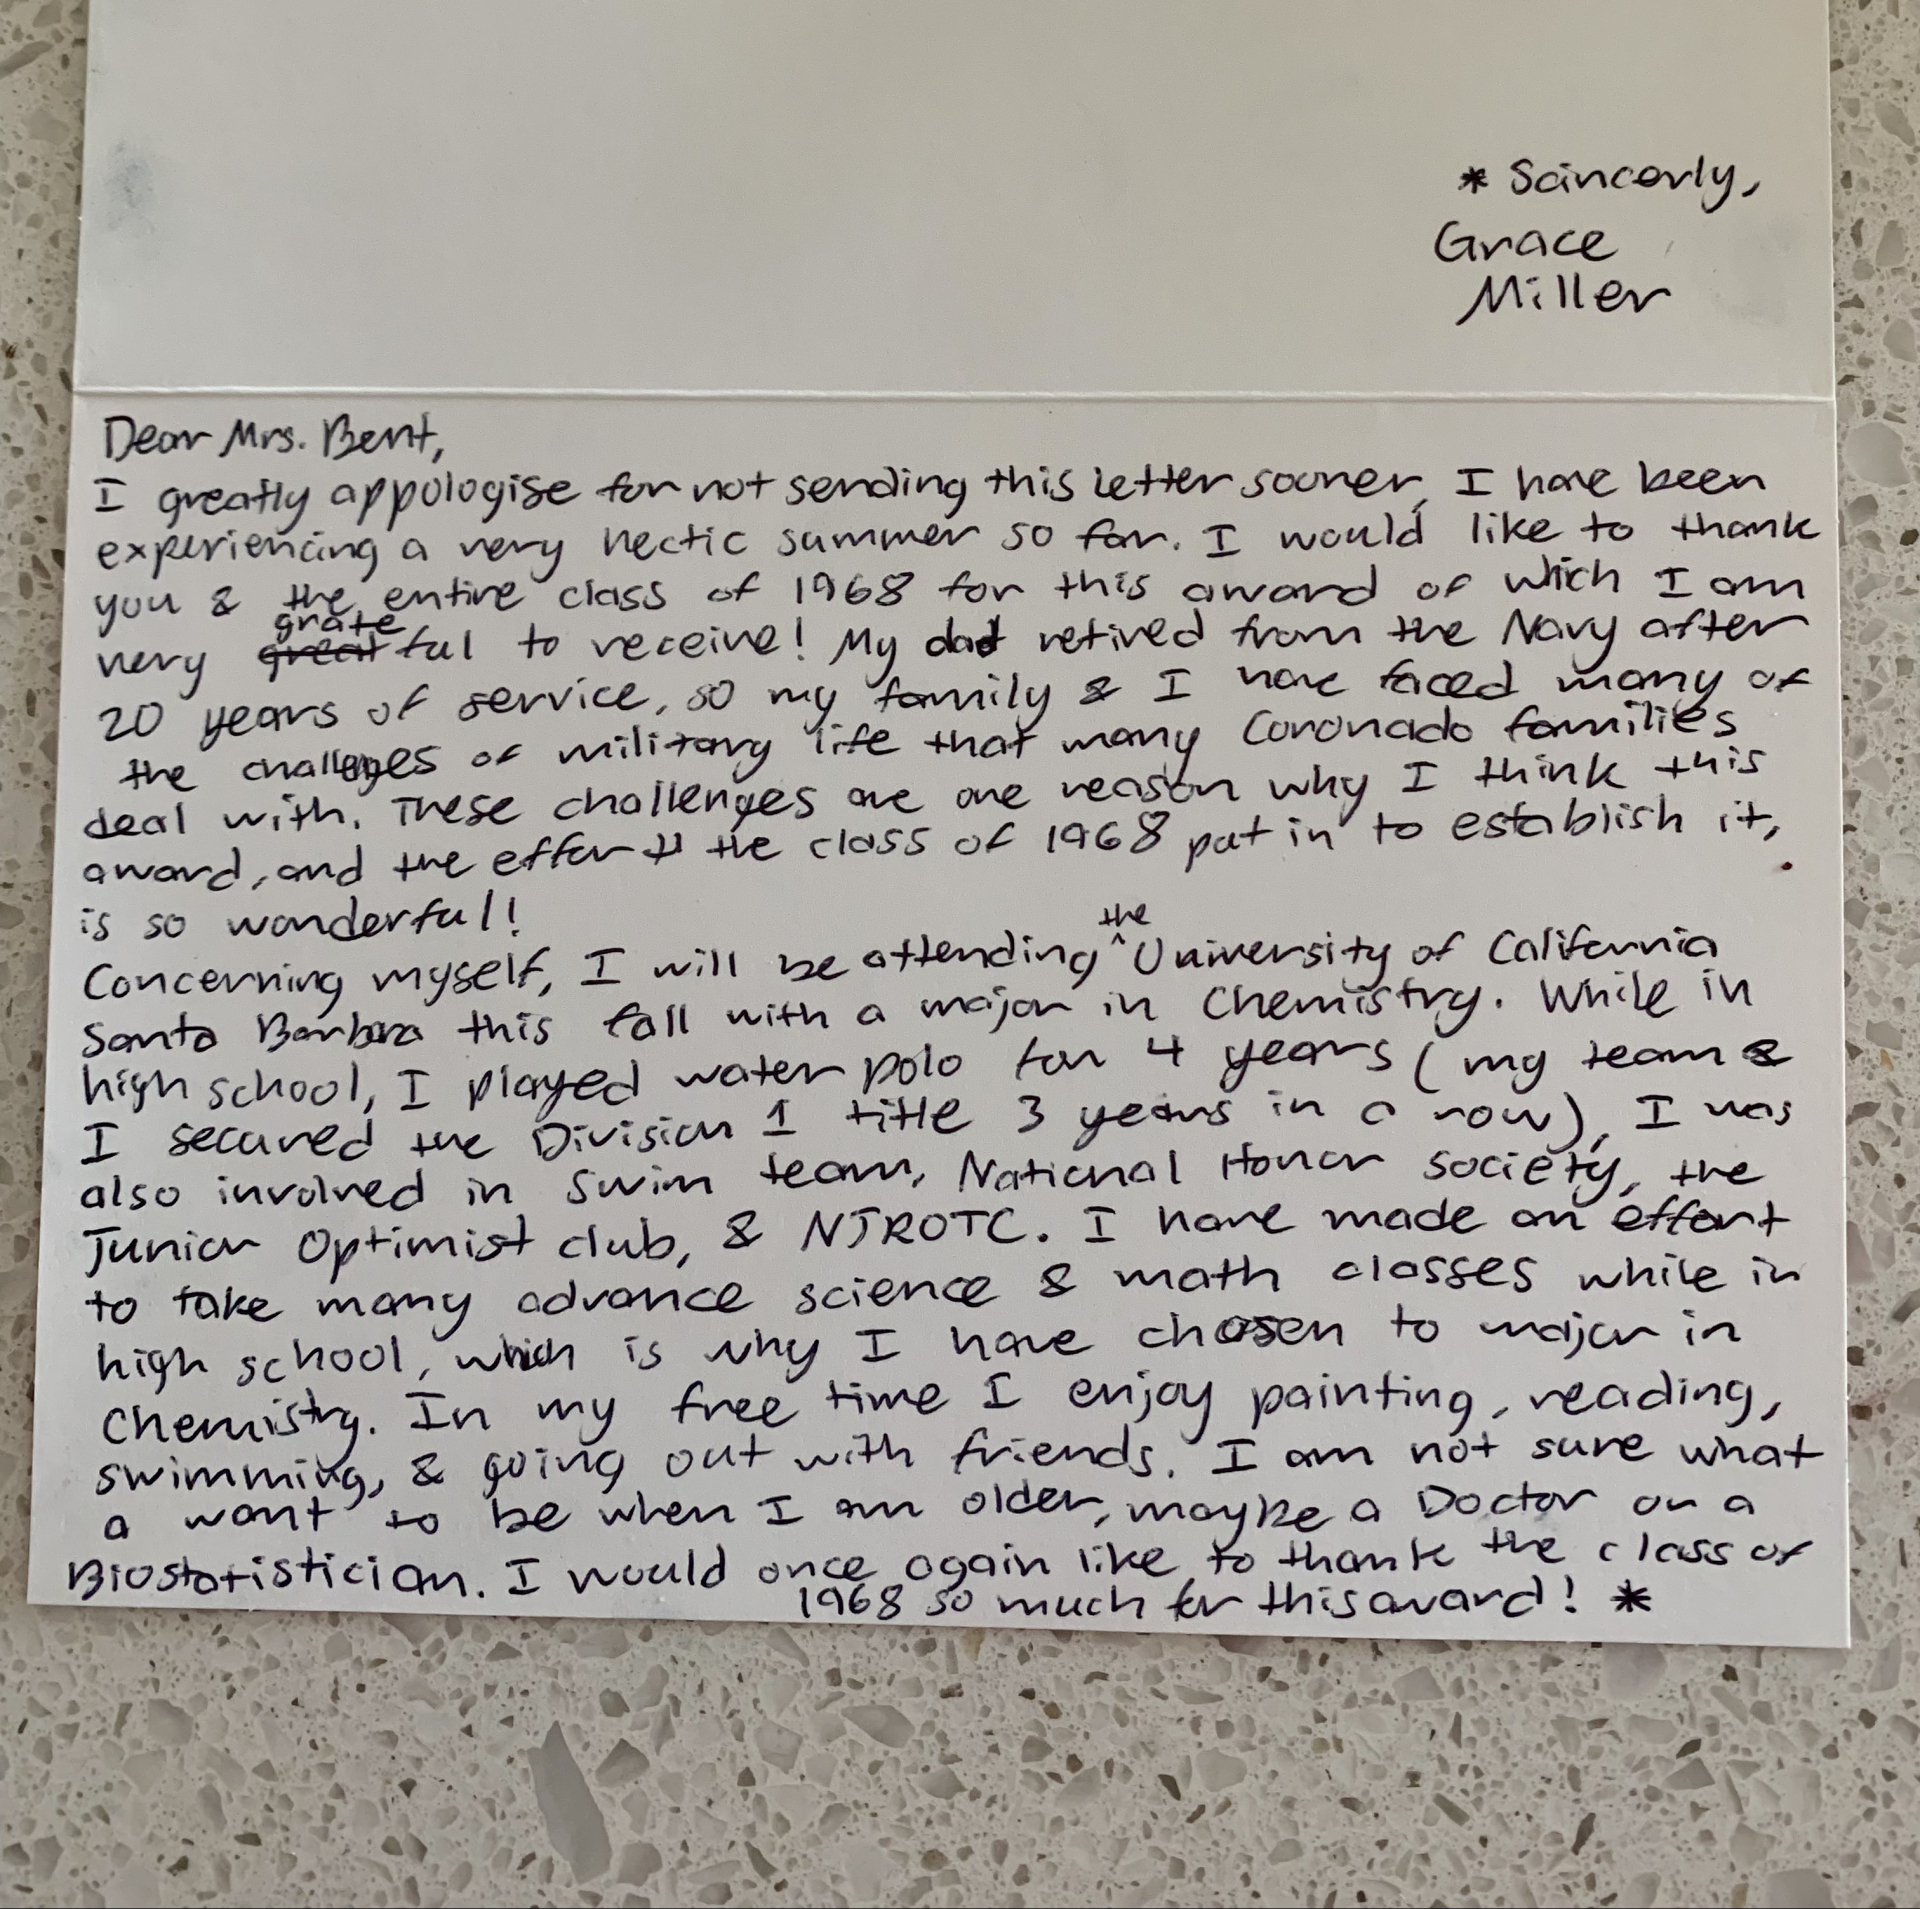 Dear Mrs. Bent,
I greatly appologise for not sending this letter sooner, I have been
experiencing a very hectic summer so far. I would like to thank
you & the entire class of 1968 for this award of which I am
grate
very great ful to receive! My dad retired from the Navy after
20 years of service, so my family & I have faced many of
the challenges of military life that many Coronado families
deal with. These challenges are one reason why I think this
award, and the effort the class of 1968 put in to establish it,
is so wonderful!
the
Concerning myself, I will be attending ^ University of California
Santa Barbara this fall with a major in Chemistry. While in
high school, I played water polo for 4 years (my team &
I secured the Division 1 title 3 years in a row), I was
also involved in Swim team, National Honor Society, the
Junior Optimist club, & NJROTC. I have made an effort
to take many advance science & math classes while in
high school, which is why I have chosen to major in
Chemistry. In my free time I enjoy painting, reading,
swimming, & going out with friends. I am not sure what
a want to be when I am older, maybe a Doctor or a
Biostatistician. I would once again like to thank the class of
1968 so much for this award! *
* Sincerly,
Grace
Miller